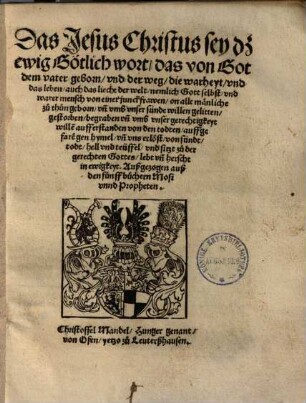 Das Jesus Christus sey dz
ewig Götlich wort / das von Got
dem vater geborn / vnd der weg / die warheyt / vnd
das leben / auch das liecht der welt / nemlich Gott selbst / vnd
warer mensch von einer junckfrawen / on alle mänliche
zů thůn geborn / vñ vmb vnser sünde willen gelitten /
gestorben / begraben vñ vmb vnser gerechtigkeyt
wille aufferstanden von den todten / auffge
farẽ gen hymel vñ vns erlößt von sünde /
todt / hell vnd teüffel / vnd sitzt zů der
gerechten Gottes / lebt vñ herscht
in ewigkeyt. Außgezogen auß
den fünff büchern Mosi
vnnd Propheten.
Christoffel Mandel / Hunger genant /
von Ofen / yetzo zů Leuterßhausen.